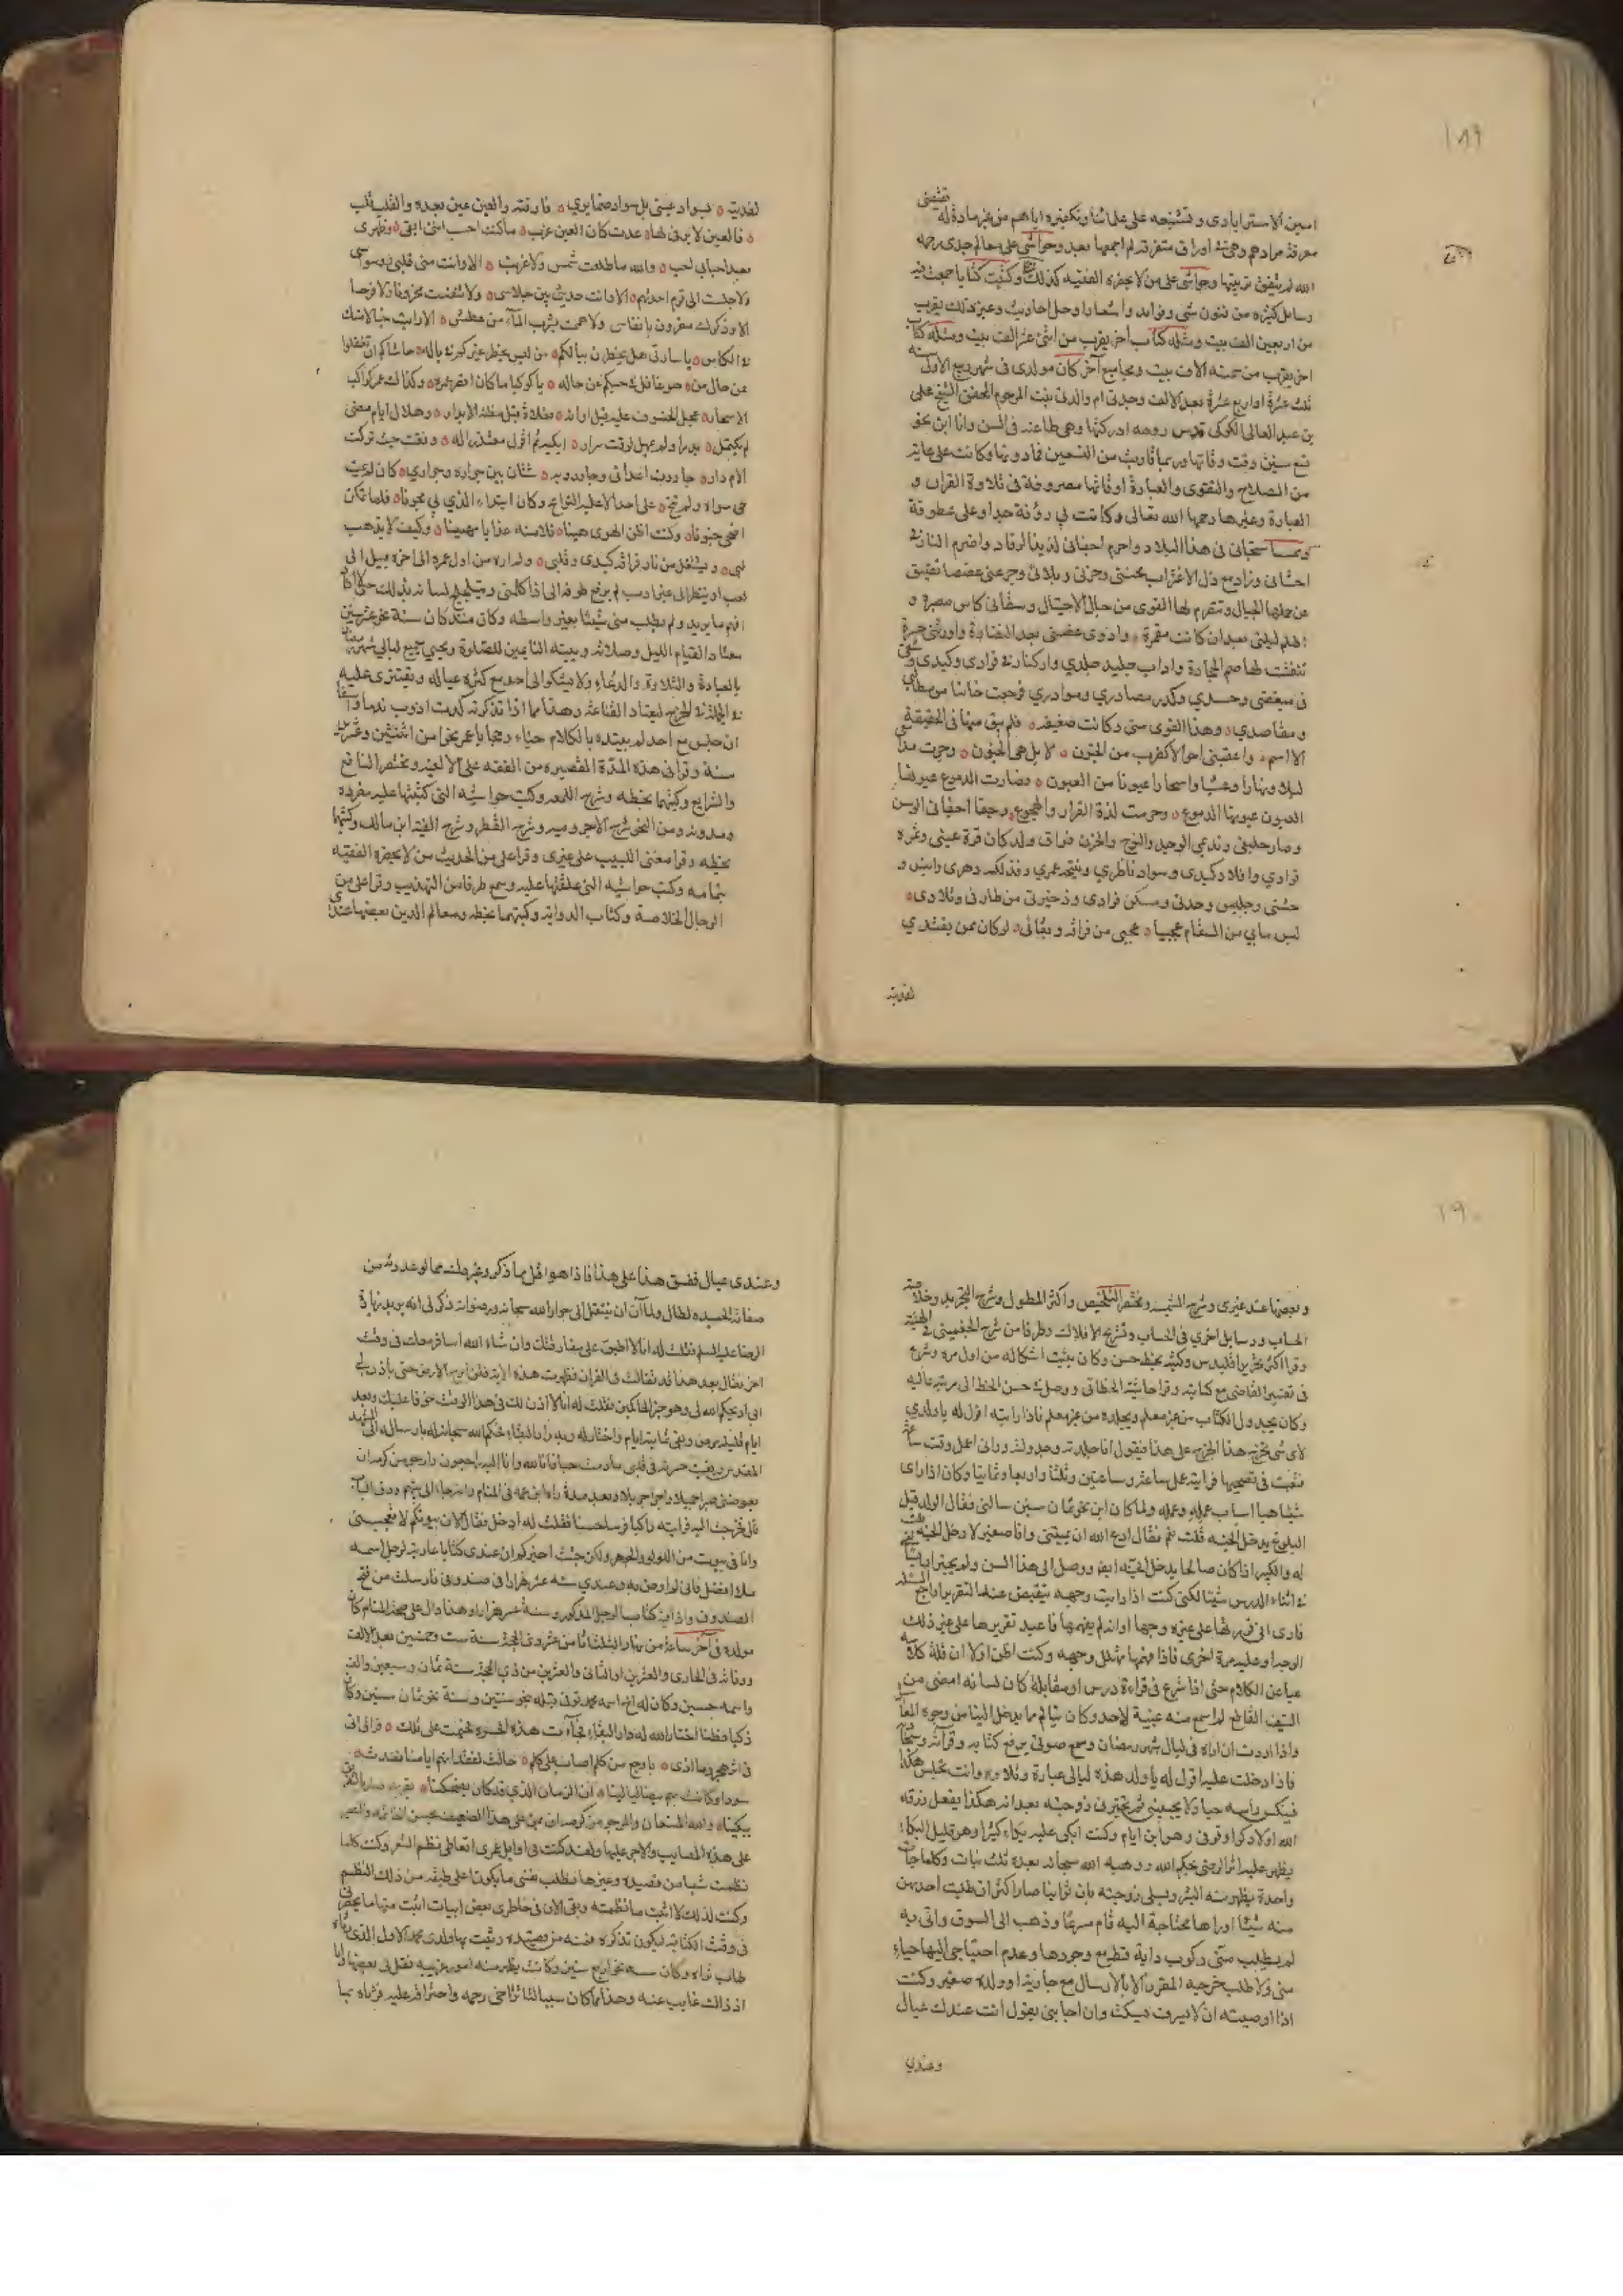 ١٨٩
امين الاسترابادى و تشنيعه على علمائنا وتكفيره اياهم من غير مادة له تقتضى
معرفة مرادهم وهى اوراق متفرقة لم اجمعها بعد وحواشى على معالم جدى رحمه
الله لم يتفق تربيتها وحواشى على من لا يحضره الفقيه كذلك وكتبت كتابا جمعت فيه
رسايل كثيرة من فنون شتى وفوايد واشعارا وحل احاديث وغير ذلك يقرب
من اربعين الف بيت ومثله كتاب اخر يقرب من اثنى عشر الف بيت ومثله كتاب
اخر يقرب من خمسة الاف بيت ومجاميع آخر كان مولدى فى شهر ربيع الاول سنة
ثلث عشرة او اربع عشرة بعد الالف وجدتى ام والدتى بنت المرحوم المحقق الشيخ على
بن عبد العالى الكركى قدس روحه ادركتها وهى طاعنة فى السن وانا ابن نحو
تسع سنين وقت وفاتها وربما قاربت من التسعين فما دونها وكانت على غاية
من الصلاح والتقوى والعبادة اوقاتها مصروفة فى تلاوة القران و
العبادة وغيرها رحمها الله تعالى وكانت لى رؤفة جدا وعلى عطوفة
ومما شجانى فى هذا البلاد واحرم اجفانى لذيذ الرقاد واضرم النار فى
احشائى وزاد مع ذل الاغتراب محنتى وحزنى وبلائى وجرعنى غصصا تضيق
عن حملها الجبال وتنصرم لها القوى من حبال الاحتيال وسقانى كاس مصبرة و
اظلم ليلتى بعد ان كانت مقمرة واذوى غصنى بعد النضارة واورثنى حسرة
تفتتت لها صم الحجارة واذاب جليد جلدي واركنا فى فوادى وكبدى
فى مبغضى وحسدي وكدر مصادري ومواردي فرحت خائبا من مطالبى
ومقاصدي وهذا القوى منى وكانت ضعيفة فلم يبق منها فى الحقيقة
الا الاسم واعقبنى احوالا كضرب من الجنون لا بل هى الجنون وجرت مدا
ليلا ونهارا وعشيا واسحارا عيونا من العيون وصارت الدموع عيونها
العيون عيونها الدموع وحرمت لذة القرار والهجوع وجفا اجفانى الوسن
وصار جليسى ونديمى الوجد والنوح والحزن فراق ولد كان قرة عينى وثمرة
فوادي وافلاذ كبدى وسواد ناظري ونتيجة عمري وفذلكة دهرى وانيس و
حشتى وجليس وحدتى ومسكن فوادى وذخيرتى من طارفى وتلادى
ليس ما بي من السقام عجيبا عجبى من فراقه وبقائى لو كان ممن يفتدي
لفديته
لفديته بسواد عينى بل سواد ضمايري فارقته والعين عين بعده والقلب قلب
فالعين لا يرقى لها عدت كان العين غرب ماكنت احسب اننى ابقى وظهرى
بعد احبابى احب والله ما طلعت شمس ولا غربت الا وانت منى قلبى ووسواسى
ولا جلست الى قوم احدثهم الا وانت حديثى بين جلاسى ولا تنفست محزونا ولا فرحا
الا وذكرك مقرون بانفاس ولا هممت بشرب المآء من عطش الا رايت خيالا منك
فى الكاس يا سادتى هل يخطرن ببالكم من ليس يخطر غيركم فى باله حاشاكم ان تغفلوا
عن حال من هو غافل فى حبكم عن حاله يا كوكبا ما كان اقصر عمره وكذاك عمر كواكب
الاسحار عجل الخسوف عليه قبل اوانه فغلاه قبل مظنة الابدار وهلال ايام مضى
لم يكتمل بدرا ولم يمهل لوقت سرار ابكيه ثم اقول معتذرا له وفقت حيث تركت
الأم دار جاورت اعدائى وجاور ربه شتان بين جواره وجواري كان لوعيت
وكيف لا يذهب
لبى ويشتعل من نار فراقه كبدى وقلبى وله اره من اول عمره الى اخره يميل الى
لعب او ينظر الى عبث
افهم ما يريد ولم يطلب منى شيئا بغير واسطة وكان منذ كان سنه نحو عشر سنين
معتاد القيام الليل وصلاته وتنبيه النايمين للصلوة ويحيى جميع ليالى شهر رمضان
بالعبادة والتلاوة والدعاء ولا يشكو الى احد مع كثرة عياله وتقترى عليه
فى الجملة فى الخرج ليعتاد القناعة وهذا مما اذا تذكرته كدت اذوب ندما واسفا
ان جلس مع احد لم يبتده بالكلام حياء وحجابا عمر نحوا من اثنتين وعشرين
سنة وقرا فى هذه المدة القصيرة من الفقه على الالفيه ومختصر النافع
والشرايع وكتبهما بخطه وشرح اللمعه وكتب حواشيه التى كتبتها عليه مفردة
ومدونه ومن النحو شرح الاجروميه وشرح القطر وشرح الفيه ابن مالك وكتبها
بخطه وقرا مغنى اللبيب على غيرى وقرا على من الحديث من لا يحضره الفقيه
بتمامه وكتب حواشيه التى علقتها عليه وسمع طرفا من التهذيب وقرا على من
الرجال الخلاصة وكتاب الدراية وكتبهما بخطه ومعالم الدين بعضها عندى
١٩٠
وبعضها عند غيرى وشرح الشمسيه ومختصر التلخيص واكثر المطول وشرح التجريد وخلاصة
الحساب ورسايل اخرى فى الحساب وتشريح الافلاك وطرفا من شرح الجغمينى فى الهيئة
وقرا اكثر تحرير اقليدس وكتبه بخط حسن وكان يثبت اشكاله من اول مرة وشرع
فى تفسير القاضى مع كتابته وقرا حاشية الخطائى ووصل فى حسن الخط الى مرتبة عالية
وكان يجدول الكتاب من غير معلم ويجلده من غير معلم فاذا رايته اقول له يا ولدي
لاى شى تخرج هذا الخرج على هذا فيقول انا جلدته وجدولته وانى اعمل وقت ساعة
تعبت فى تصحيحها فرايته عمل ساعتين وثلثا واربعا وثمانيا وكان اذا راى
شيئا هيا اسباب عمله وعمله ولما كان ابن نحو ثمان سنين سالنى فقال الولد قبل
البلوغ يدخل الجنة قلت نعم فقال ادع الله ان يميتنى وانا صغير لادخل الجنة فقلت
له والكبير اذا كان صالحا يدخل الجنة ايضا ووصل الى هذا السن ولم يخبر
فى اثناء الدرس شيئا لكنى كنت اذا رايت وجهه ينقبض عند التقرير
فارى انى قررتها على غير وجهها او انه لم يفهمها فاعيد تقريرها على غير ذلك
الوجه او عليه مرة اخرى فاذا فهمها تهلل وجهه وكنت اظن اولا ان قلة كلامه
عيا عن الكلام حتى اذا شرع فى قراءة درس او مقابلة كان لسانه امضى من
السيف القاطع لم اسمع منه غيبة لاحد وكان يتالم مما يدخل الينا من وجوه المعاش
واذا اردت ان اراه فى ليالى شهر رمضان وسمع صوتى يرفع كتابه وقرآنه
فاذا دخلت عليه اقول له يا ولد هذه ليالى عبادة وتلاوة وانت تجلس هكذا
فينكس راسه حياء ولا يجيبنى ثم تخبرنى زوجته بعد انه هكذا يفعل رزقه
الله اولاد ذكرا وتوفى وهو ابن ايام وكنت ابكى عليه بكاء كثيرا وهو قليل البكاء
يظهر عليه اثر الرضى بحكم الله ووهبه الله سبحانه بعده ثلث بنات وكلما جاءت
واحدة يظهر منه البشر ويسلى زوجته بان ثوابنا صار اكثر ان طلبت احديهن
منه شيئا اوراها محتاجة اليه قام سريعا وذهب الى السوق واتى به
لم يطلب منى ركوب دابة قط مع وجودها وعدم احتياجى اليها حياء
منى ولا طلب خرجية المقرر الا بالارسال مع جارية او ولده صغير وكنت
اذا اوصيته ان لا يسرف يسكت وان اجابنى يقول انت عندك عيال
وعندي
وعندى عيال فقس هذا على هذا فاذا هو اقل مما ذكر وغير ذلك مما لو عددته من
صفاته الحميده لطال ولما آن ان ينتقل الى جوار الله سبحانه ورضوانه ذكر لى انه يريد زيارة
الرضا عليه السلم فقلت له انا لا اطيق على مفارقتك وان شاء الله اسافر معك فى وقت
اخر فقال بعد هذا قد تفالت فى القران فظهرت هذه الاية فلن ابرح الارض حتى ياذن لى
ابى او يحكم الله لى وهو خير الحاكمين فقلت له انا لا اذن لك فى هذا الوقت خوفا عليك وبعد
ايام قليلة مرض وبقى ثمانية ايام واختار له ربه دار البقاء فحكم الله سبحانه له بارساله الى المشهد
المقدس وبقيت حسرته فى قلبى ما دمت حيا فانا لله وانا اليه راجعون وارجو من كرمه ان
يعوضنى صبرا جميلا واجرا جزيلا وبعد مدة راه ابن عمه فى المنام
قال فخرجت اليه فرايته راكبا فرسا حسنا فقلت له ادخل فقال لا ان بيوتكم لا تعجبنى
وانا فى بيوت من اللولو والجوهر ولكن جئت اخبركم ان عندى كتابا عارية لرجل اسمه
ملا افضل فانى لم اوص به وعندي ستة عشر هزارا فى صندوقى فارسلت من فتح
الصندوق واذا فيه كتاب الرجل المذكور وستة عشر هزارا وهذا دال على صحة المنام كان
مولده فى آخر ساعة من نهار الثلثا ثامن عشر ذى الحجة سنة ست وخمسين بعد الالف
ووفاته فى الحادى والعشرين او الثانى والعشرين من ذي الحجة سنة ثمان وسبعين والف
واسمه حسين وكان له اخ اسمه محمد توفى قبله بنحو سنتين وسنه نحو ثمان سنين وكان
ذكيا فطنا اختار الله له دار البقاء
سودا وكانت بكم بيضا ليالينا ان الزمان الذي قد كان يضحكنا بقربه صار
يبكينا والله المستعان والمرجو من كرمه ان يمن على هذا الضعيف بحسن الخاتمة والصبر
على هذه المصايب والاجر عليها ولقد كنت فى اوايل عمرى اتعاطى نظم الشعر وكنت كلما
نظمت شيا من قصيدة وغيرها تطلب نفسى ما يكون اعلى طبقة من ذلك النظم
وكنت لذلك لا اثبت ما نظمته وبقى الان فى خاطرى بعض ابيات اثبت منها ما يحضرنى
فى وقت الكتابة ليكون تذكره فمنه من قصيده رثيت بها ولدى محمد الاول الذى
طاب ثراه وكان سنه نحو اربع سنين وكانت يظهر منه امور غريبه نقل لى بعضها وانا
اذ ذاك غايب عنه وهذا ما كان سببا لتاثر اخى رحمه واحتراقه عليه فرثاه بما